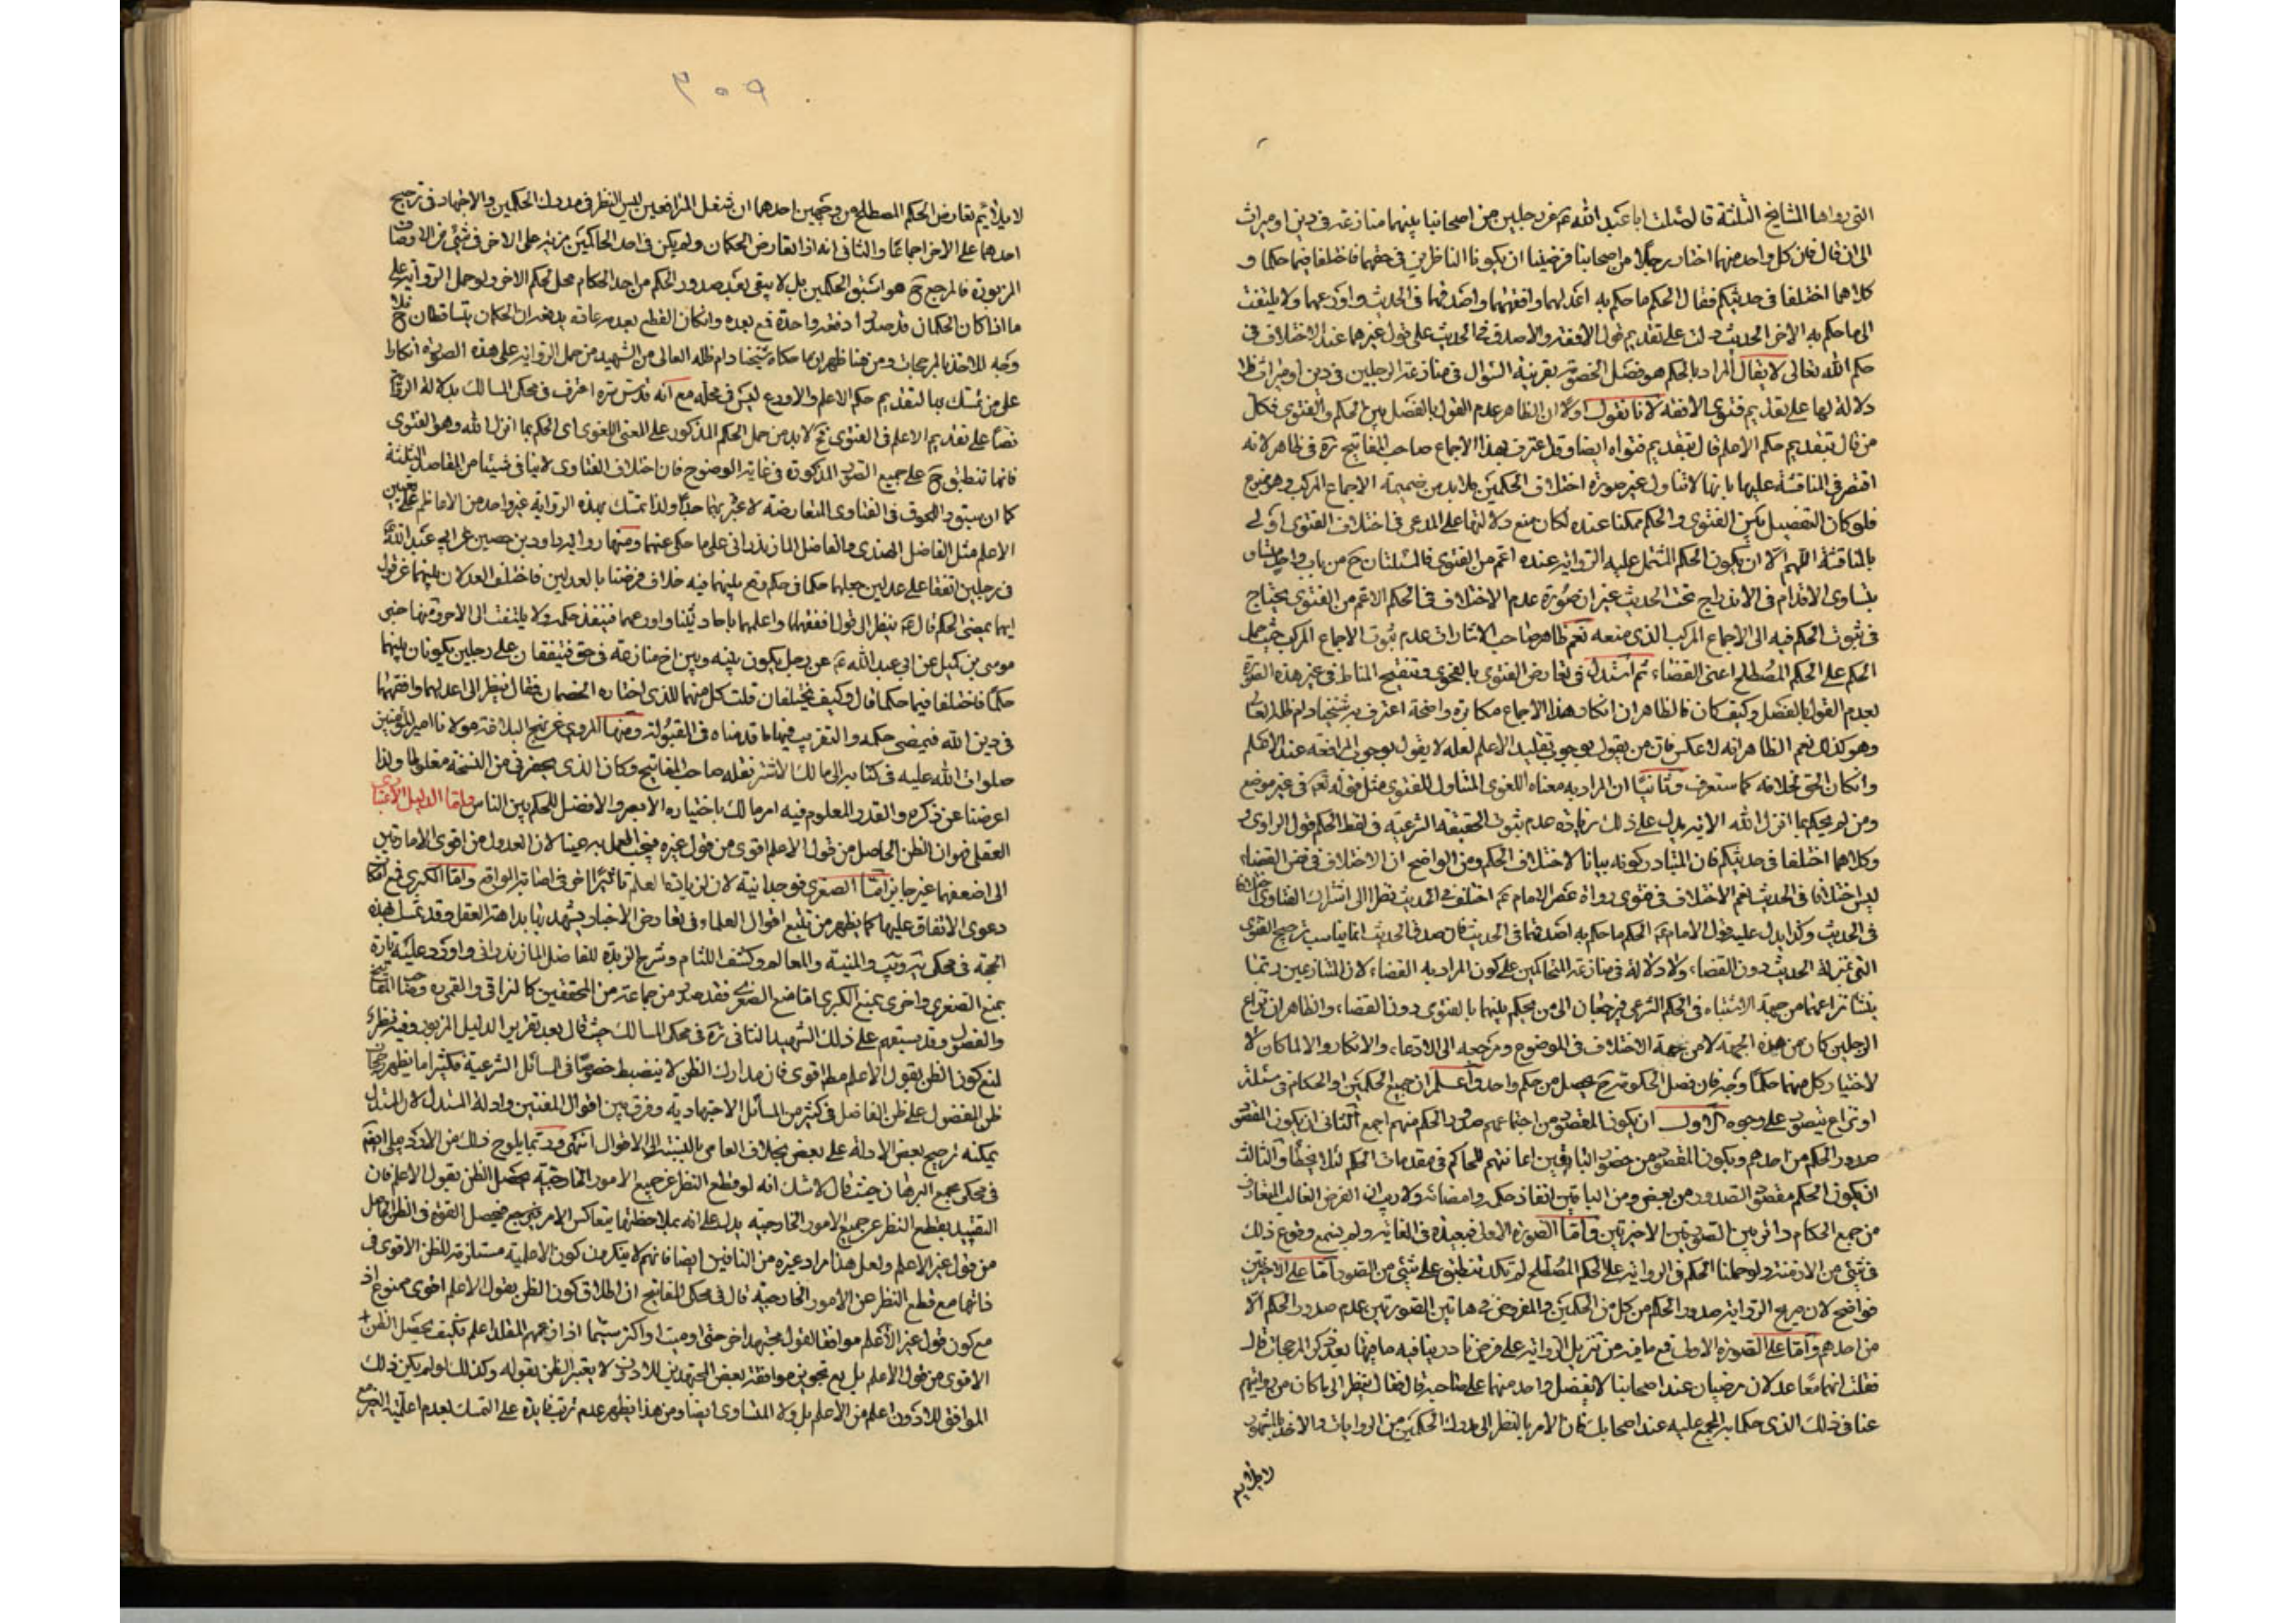 التي رواها المشايخ الثلثة قال سئلت ابا عبد الله عم عن رجلين من اصحابنا بينهما منازعة في دين او ميراث
الى ان قال فان كل واحد منهما اختار رجلا من اصحابنا فرضينا ان يكونا الناظرين في حقهما فاختلفا فيما حكما و
كلاهما اختلفا في حديثكم فقال الحكم ما حكم به اعدلهما وافقههما واصدقهما في الحديث واورعهما ولا يلتفت
الى ما حكم به الاخر الحديث دلت على تقديم قول الافقه والاصدق في الحديث على قول غيرهما عند الاختلاف في
حكم الله تعالى لا يقال المراد بالحكم هو فصل الخصومة بقرينة السؤال في منازعة الرجلين في دين او ميراث فلا
دلالة لها على تقديم فتوى الافقه لانا نقول اولا ان الظاهر عدم القول بالفصل بين الحكم والفتوى فكل
من قال بتقديم حكم الاعلم قال بتقديم فتواه ايضا وقد اعترف بهذا الاجماع صاحب المفاتيح ره في ظاهر لانه
اقتصر في المناقشة عليها بانها لا تتناول غير صورة اختلاف الحكمين فلا بد من ضميمة الاجماع المركب وهو ممنوع
فلو كان التفصيل بين الفتوى والحكم ممكنا عنده لكان منع دلالتها على المدعى في اختلاف الفتوى اولى
بالمناقشة اللهم الا ان يكون الحكم المشتمل عليه الرواية عنده اعم من الفتوى فالمسئلتان ح من باب واحد
بتساوى الاقدام في الاندراج تحت الحديث غير ان صورة عدم الاختلاف في الحكم الاعم من الفتوى يحتاج
في ثبوت الحكم فيه الى الاجماع المركب الذى منعه نعم ظاهر صاحب الاشارات عدم ثبوت الاجماع المركب حيث حمل
الحكم على الحكم المصطلح اعنى القضاء ثم استدل في تعارض الفتوى بالفحوى وتنقيح المناط في غير هذه الصورة
لعدم القول بالفصل وكيف كان فالظاهر ان انكار هذا الاجماع مكابرة واضحة اعترف به شيخنا دام ظله العالى
وهو كذلك نعم الظاهر انه لا عكس فان من يقول بوجوب تقليد الاعلم لعله لا يقول بوجوب المرافعة عند الاعلم
وان كان الحق خلافه كما ستعرف وثانيا ان المراد به معناه اللغوى المتناول للفتوى مثل قوله تعم في غير موضع
ومن لم يحكم بما انزل الله الاية يدل على ذلك زيادة عدم ثبوت الحقيقة الشرعية في لفظ الحكم قول الراوى و
وكلاهما اختلفا في حديثكم فان المتبادر كونه بيانا لاختلاف الحكم ومن الواضح ان الاختلاف في نفس القضاء
ليس اختلافا في الحديث نعم الاختلاف في فتوى رواة عصر الامام عم اختلف في الحديث نظرا الى اشتراك الفتاوى
في الحديث وكذا يدل عليه قول الامام عم الحكم ما حكم به اصدقهما في الحديث فان صدق الحديث انما يناسب ترجيح الفتوى
التي بمنزلة الحديث دون القضاء ولا دلالة في منازعة المتحاكمين على كون المراد به القضاء لان المتنازعين ربما
ينشأ نزاعهما من جهة الاشتباه في الحكم الشرعى فيرجعان الى من يحكم بينهما بالفتوى دون القضاء والظاهر ان نزاع
الرجلين كان من هذه الجهة لا من جهة الاختلاف في الموضوع ومرجعه الى الادعاء والانكار والا لما كان
لاختيار كل منهما حكما وجه فان فصل الحكومة ح يحصل من حكم واحد واعلم ان جميع الحكمين او الحكام في مسئلة
او نزاع يتصور على وجوه الاول ان يكون المقصود من اجتماعهم صدور الحكم منهم اجمع الثانى ان يكون المقصود
صدور الحكم من احدهم ويكون المقصود من حضور الباقين اعانتهم للحاكم في مقدمات الحكم لئلا يخطأ والثالث
ان يكون الحكم مقصود الصدور من بعض ومن الباقين انفاذ حكمه وامضائه ولا ريب ان الفرض الغالب المتعارف
من جميع الحكام دائر بين الصورتين الاخيرتين واما الصورة الاولى فبعيدة في الغاية ولم يسمع وقوع ذلك
في شئ من الازمنة ولو حملنا الحكم في الرواية على الحكم المصطلح لم تكد تنطبق على شئ من الصور اما على الاخيرتين
فواضح لان صريح الرواية صدور الحكم من كل من الحكمين والمفروض في هاتين الصورتين عدم صدور الحكم الا
من احدهم واما على الصورة الاولى فمع ما فيه من تنزيل الرواية على فرض نادر ينافيه ما فيها بعد ذكر المرجحات قال
فقلت انهما معا عدلان مرضيان عند اصحابنا لا يفضل واحد منهما على صاحبه قال فقال ينظر الى ما كان من روايتهم
عنا في ذلك الذى حكما به المجمع عليه عند اصحابك فان الامر بالنظر الى مدرك الحكمين من الروايات والاخذ بالمشهور
لا يلايم
٣٠٩
لا يلايم تعارض الحكم المصطلح من وجهين احدهما ان شغل المترافعين ليس النظر في مدرك الحكمين والاجتهاد في ترجيح
احدهما على الاخر اجماعا والثانى انه اذا تعارض الحكمان ولم يكن في احد الحاكمين مزية على الاخر في شئ من الاوصاف
المزبورة فالمرجع ح هو اسبق الحكمين بل لا يبقى بعد صدور الحكم من احد الحكام محل لحكم الاخر ولو حمل الرواية على
ما اذا كان الحكمان قد صدرا دفعة واحدة فمع بعده وان كان القطع بعدم مدفوع ان الحكمان يتساقطان ح فلا
وجه للاخذ بالمرجحات ومن هنا ظهر ان ما حكاه شيخنا دام ظله العالى من الشهيد من حمل الرواية على هذه الصورة انكارا
على من تمسك بها لتقديم حكم الاعلم والاورع ليس في محله مع انه قدس سره اعترف في محكى المسالك بدلالة الرواية
نصا على تقديم الاعلم في الفتوى فح لا بد من حمل الحكم المذكور على المعنى اللغوى اى الحكم بما انزل الله وهو الفتوى
فانها تنطبق ح على جميع الصور المذكورة في غاية الوضوح فان اختلاف الفتاوى لا ينافى شيئا من المفاصل الثلثة
كما ان سبق واللحوق في الفتاوى المتعارضة لا عبرة بهما جدا ولذا تمسك بهذه الرواية غير واحد من الاعاظم على تعيين
الاعلم مثل الفاضل الهندى والفاضل المازندرانى على ما حكى عنهما ومنها رواية داود بن حصين عن ابى عبد الله عم
في رجلين اتفقا على عدلين جعلهما حكما في حكم وقع بينهما فيه خلاف فرضنا بالعدلين فاختلف العدلان بينهما عن قول
ايهما يمضى الحكم قال عم ينظر الى قول افقههما واعلمهما باحاديثنا واورعهما فينفذ حكمه ولا يلتفت الى الاخر ومنها خبر
موسى بن اكيل عن ابى عبد الله عم عن رجل يكون بينه وبين اخ منازعة في حق فيتفقان على رجلين يكونان بينهما
حكما فاختلفا فيما حكما قال وكيف يختلفان قلت كل منهما للذى اختاره الخصمان فقال ينظر الى اعدلهما وافقههما
في دين الله فيمضى حكمه والتقريب فيهما ما قدمناه في المقبولة ومنها المروى عن نهج البلاغة مولانا امير المؤمنين
صلوات الله عليه في كتابه الى مالك الاشتر نقله صاحب المفاتيح وكان الذى يحضرنى من النسخة مغلوطا ولذا
اعرضنا عن ذكره والقدر المعلوم فيه امر مالك باختياره الابصر والافضل للحكم بين الناس واما الدليل الاعتبارى
العقلى فهو ان الظن الحاصل من قول الاعلم اقوى من قول غيره فيجب العمل به عينا لان العدول من اقوى الامارتين
الى اضعفهما غير جايز اما الصغرى فوجدانية لان لزيادة العلم تاثيرا اخر في اصابة الواقع واما الكبرى فمع امكان
دعوى الاتفاق عليها كما يظهر من تتبع اقوال العلماء في تعارض الاخبار يشهد بها بداهة العقل وقد تمسك بهذه
الحجة في محكى يه ويب والمنية والمعالم وكشف اللثام وشرح الزبدة للفاضل المازندرانى واورد عليه تارة
بمنع الصغرى واخرى بمنع الكبرى اما منع الصغرى فقد صدر من جماعة من المحققين كالنراقى والقمى ره وصاحب المفاتيح
والفصول وقد سبقهم على ذلك الشهيد الثانى ره في محكى المسالك حيث قال بعد تقرير الدليل المزبور وفيه نظر
لمنع كون الظن بقول الاعلم مط اقوى فان مدارك الظن لا ينضبط خصوصا في المسائل الشرعية فكثيرا ما يظهر رجحان
ظن المفضول على ظن الفاضل في كثير من المسائل الاجتهادية وفرق بين اقوال المفتين وادلة المستدل لان المستدل
يمكنه ترجيح بعض الادلة على بعض بخلاف العامى بالنسبة الى الاقوال انتهى وربما يلوح ذلك من الاردبيلى ايضا
في محكى مجمع البرهان حيث قال لا شك انه لو قطع النظر عن جميع الامور الخارجية يحصل الظن بقول الاعلم فان
التقييد بقطع النظر عن جميع الامور الخارجية يدل على انه بملاحظتها يتعاكس الامر فيحصل القوة في الظن الحاصل
من قول غير الاعلم ولعل هذا مراد غيره من النافين ايضا فانهم لا ينكرون كون الاعلمية مستلزمة للظن الاقوى في
ذاتها مع قطع النظر عن الامور الخارجية قال في محكى المفاتيح ان اطلاق كون الظن بقول الاعلم اقوى ممنوع اذ
مع كون قول غير الاعلم موافقا لقول مجتهد اخر حى او ميت او اكثر سيما اذا زعمهم المقلد اعلم فكيف يحصل الظن
الاقوى من قول الاعلم بل مع تجويز موافقة بعض المجتهدين للادون لا يعتبر الظن بقوله وكذلك لو لم يكن ذلك
الموافق للادون اعلم من الاعلم بل ولا المساوى ايضا ومن هذا يظهر عدم ترتب فايدة على التمسك بعدم اعلمية الغير مع